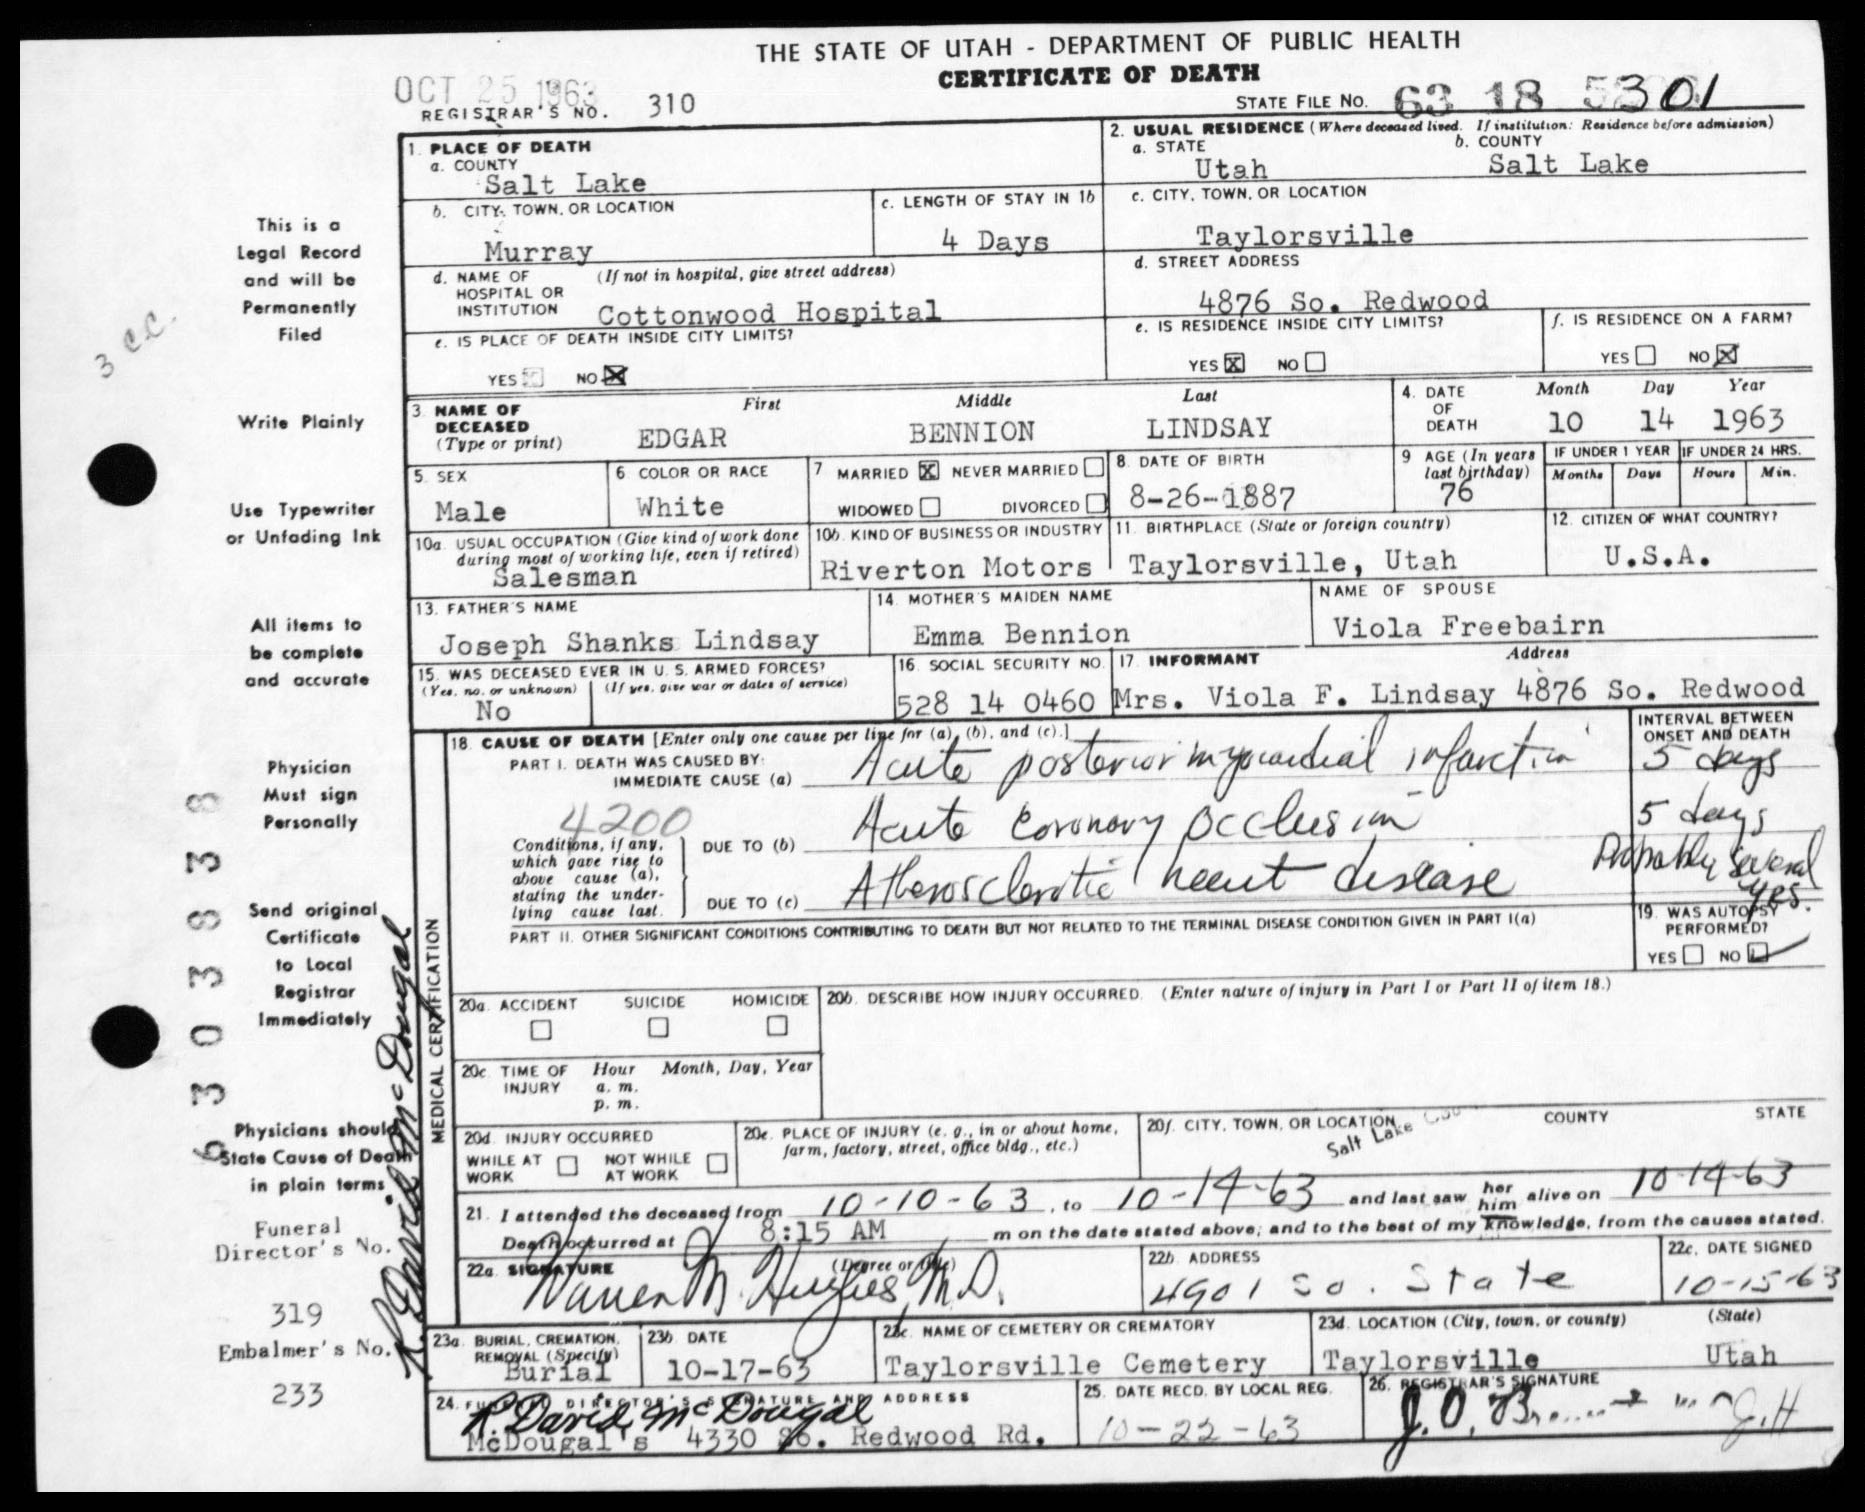 THE STATE OF UTAH - DEPARTMENT OF PUBLIC HEALTH
CERTIFICATE OF DEATH
OCT 25 1963
REGISTRAR'S NO. 310
STATE FILE NO. 63 18 5301
1. PLACE OF DEATH
a. COUNTY
Salt Lake
2. USUAL RESIDENCE (Where deceased lived. If institution: Residence before admission)
a. STATE b. COUNTY
Utah Salt Lake
b. CITY, TOWN, OR LOCATION
Murray
c. LENGTH OF STAY IN 1b
4 Days
c. CITY, TOWN, OR LOCATION
Taylorsville
d. NAME OF HOSPITAL OR INSTITUTION (If not in hospital, give street address)
Cottonwood Hospital
d. STREET ADDRESS
4876 So. Redwood
e. IS PLACE OF DEATH INSIDE CITY LIMITS?
YES NO X
e. IS RESIDENCE INSIDE CITY LIMITS?
YES X NO
f. IS RESIDENCE ON A FARM?
YES NO X
3. NAME OF DECEASED (Type or print)
First Middle Last
EDGAR BENNION LINDSAY
4. DATE OF DEATH
Month Day Year
10 14 1963
5. SEX
Male
6. COLOR OR RACE
White
7 MARRIED X NEVER MARRIED
WIDOWED DIVORCED
8. DATE OF BIRTH
8-26-1887
9 AGE (In years last birthday)
76
IF UNDER 1 YEAR
Months Days
IF UNDER 24 HRS.
Hours Min.
10a. USUAL OCCUPATION (Give kind of work done during most of working life, even if retired)
Salesman
10b. KIND OF BUSINESS OR INDUSTRY
Riverton Motors
11. BIRTHPLACE (State or foreign country)
Taylorsville, Utah
12. CITIZEN OF WHAT COUNTRY?
U.S.A.
13. FATHER'S NAME
Joseph Shanks Lindsay
14. MOTHER'S MAIDEN NAME
Emma Bennion
NAME OF SPOUSE
Viola Freebairn
15. WAS DECEASED EVER IN U. S. ARMED FORCES?
(Yes, no, or unknown) (If yes, give war or dates of service)
No
16. SOCIAL SECURITY NO.
528 14 0460
17. INFORMANT Address
Mrs. Viola F. Lindsay 4876 So. Redwood
MEDICAL CERTIFICATION
18. CAUSE OF DEATH [Enter only one cause per line for (a), (b), and (c).]
INTERVAL BETWEEN ONSET AND DEATH
PART I. DEATH WAS CAUSED BY:
IMMEDIATE CAUSE (a) Acute posterior myocardial infarction
5 days
4200
Conditions, if any, which gave rise to above cause (a), stating the underlying cause last.
DUE TO (b) Acute Coronary Occlusion
5 days
DUE TO (c) Atherosclerotic heart disease
Probably Several yrs.
PART II. OTHER SIGNIFICANT CONDITIONS CONTRIBUTING TO DEATH BUT NOT RELATED TO THE TERMINAL DISEASE CONDITION GIVEN IN PART I(a)
19. WAS AUTOPSY PERFORMED?
YES NO
20a. ACCIDENT SUICIDE HOMICIDE
20b. DESCRIBE HOW INJURY OCCURRED. (Enter nature of injury in Part I or Part II of item 18.)
20c. TIME OF INJURY Hour Month, Day, Year
a. m.
p. m.
20d. INJURY OCCURRED
WHILE AT WORK NOT WHILE AT WORK
20e. PLACE OF INJURY (e. g., in or about home, farm, factory, street, office bldg., etc.)
20f. CITY, TOWN, OR LOCATION COUNTY STATE
Salt Lake
21. I attended the deceased from 10-10-63, to 10-14-63 and last saw her him alive on 10-14-63
Death occurred at 8:15 AM m on the date stated above; and to the best of my knowledge, from the causes stated.
22a. SIGNATURE (Degree or title)
Warren M. Hughes, M.D.
22b. ADDRESS
4901 So. State
22c. DATE SIGNED
10-15-63
23a. BURIAL, CREMATION, REMOVAL (Specify)
Burial
23b. DATE
10-17-63
23c. NAME OF CEMETERY OR CREMATORY
Taylorsville Cemetery
23d. LOCATION (City, town, or county) (State)
Taylorsville Utah
24. FUNERAL DIRECTOR'S SIGNATURE AND ADDRESS
R. David McDougal
McDougal's 4330 So. Redwood Rd.
25. DATE RECD. BY LOCAL REG.
10-22-63
26. REGISTRAR'S SIGNATURE
J.H
This is a
Legal Record
and will be
Permanently
Filed
3 c.c.
Write Plainly
Use Typewriter
or Unfading Ink
All items to
be complete
and accurate
Physician
Must sign
Personally
Send original
Certificate
to Local
Registrar
Immediately
Physicians should
State Cause of Death
in plain terms
Funeral
Director's No.
319
Embalmer's No.
233
R. David McDougal
63038338